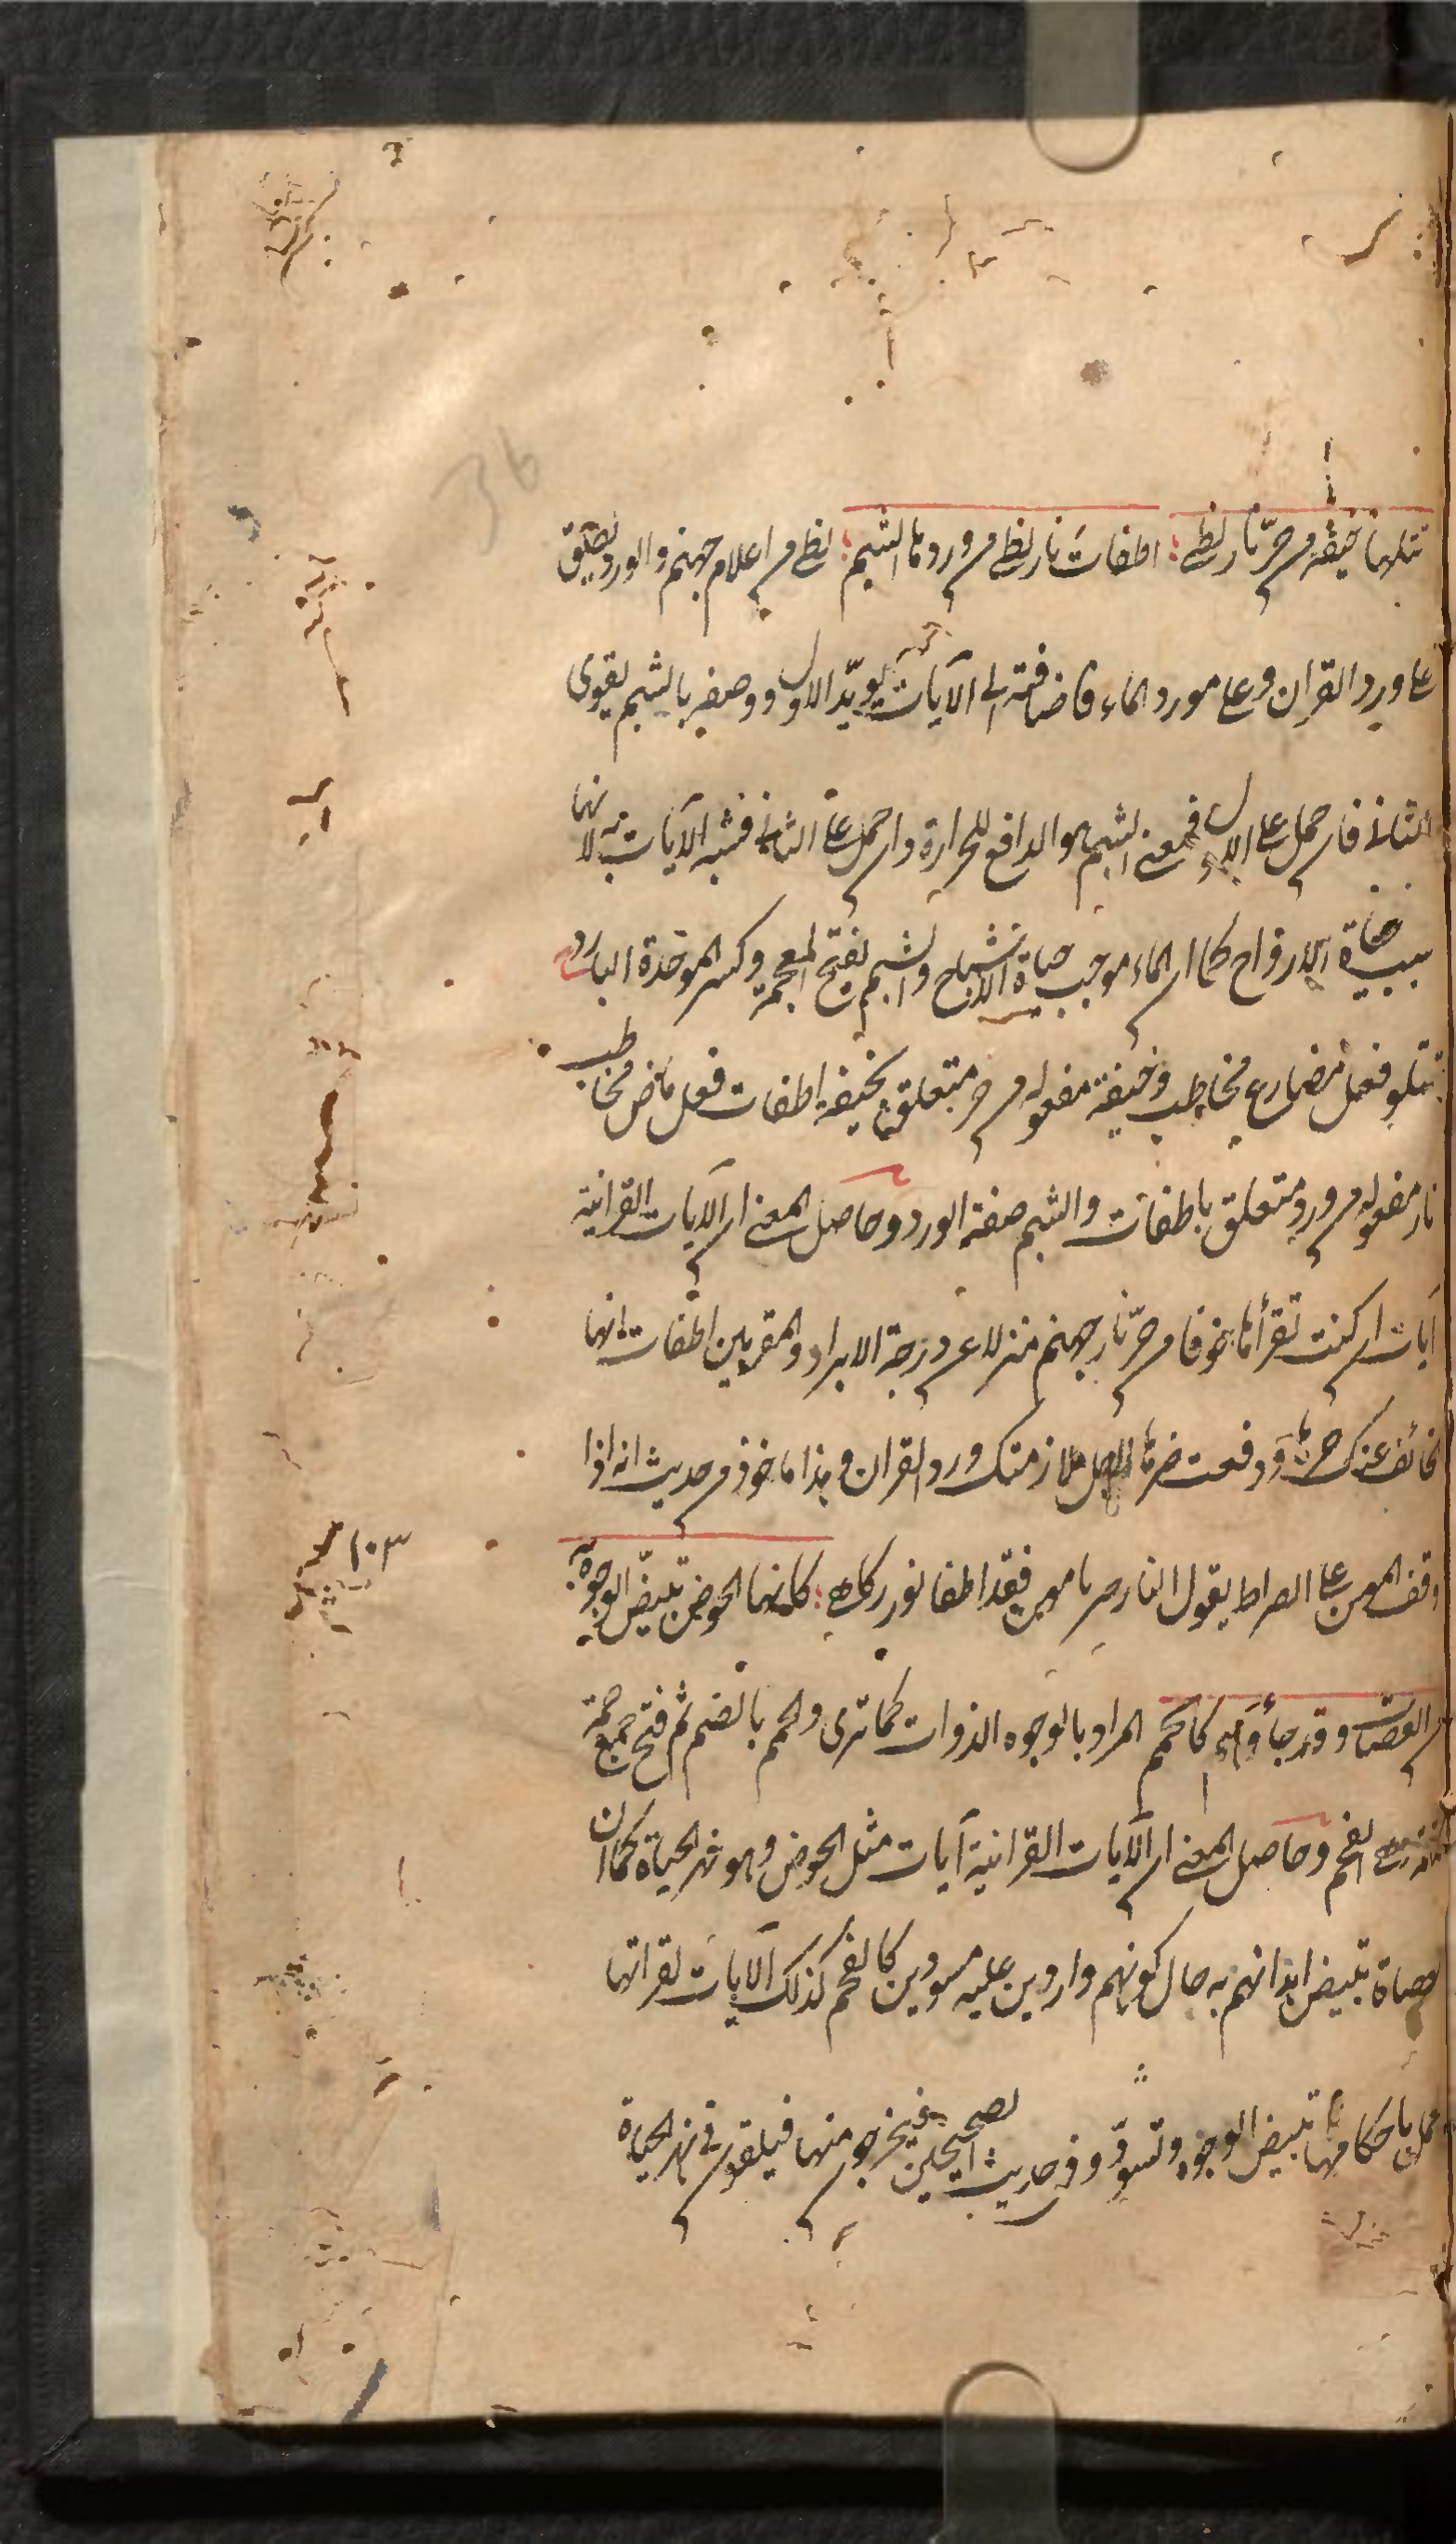 تتلها خيفة من حرّ نار لظى؛ اطفات نار لظى من وردها الشبم؛ لظى من اعلام جهنم والورد يطلق
على ورد القران وعلى مورد الماء فاضافته الى الآيات يويّد الاول ووصفه بالشبم يقوى
الثانى فان حمل على الاول فمعنى الشبم هو الدافع للحرارة وان حمل على الثانى فشبه الآيات به لانها
سبب حياة الارواح كما ان الماء موجب حياة الاشباح والشبم بفتح المعجمة وكسر الموحدة البارد
تتلو فعل مضارع مخاطب وخيفة مفعوله من حر متعلق بخيفة اطفات فعل ماض مخاطب
نار مفعوله من ورد متعلق باطفات والشبم صفة الورد وحاصل المعنى ان الآيات القرانية
آيات ان كنت تقرأها خوفا من حرّ نار جهنم منزلا عن درجة الابرار والمقربين اطفات انها
الخائف عنك حرها ودفعت ضرها لاجل ملازمتك ورد القران وهذا ماخوذ من حديث انه اذا
وقف المومن على الصراط يقول النار جز يا مومن فقد اطفا نورك لهبى؛ كانها الحوض تبيضّ الوجوه به
من العصاة وقد جاؤه كالحمم المراد بالوجوه الذوات كما ترى والحمم بالضم ثم فتح جمع حممة
الفحم وحاصل المعنى ان الآيات القرانية آيات مثل الحوض وهو نهر الحياة كما ان
العصاة تبيض ابدانهم به حال كونهم واردين عليه مسودين كالفحم كذلك الآيات لقراتها
باحكامها تبيض الوجوه وتسود وفى حديث الصحيحين فيخرجون منها فيلقون فى نهر الحياة
١٠٣
36